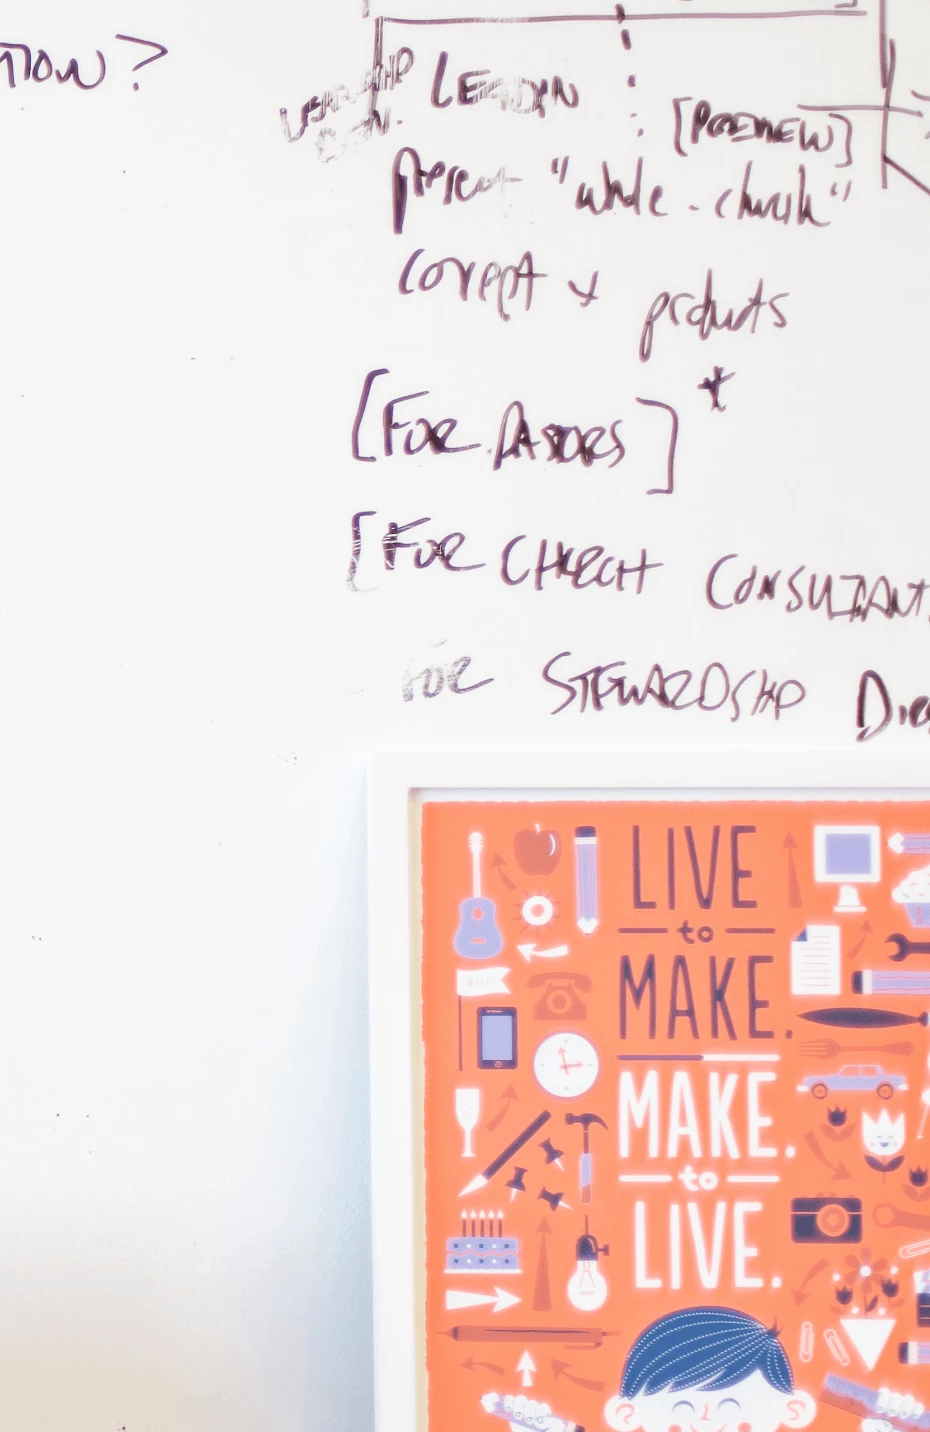 TION?
[PREVIEW]
present "whole-church"
concept + products
[FOR PASTORS] *
[FOR CHURCH CONSULTANT
FOR STEWARDSHIP Dire
LIVE
to
MAKE.
MAKE.
to
LIVE.